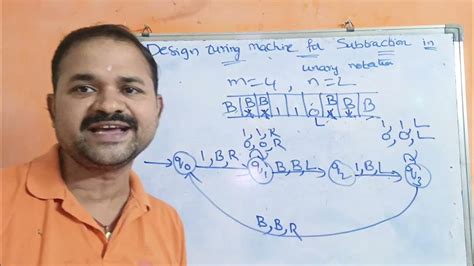 Design turing machine for Subtraction in
unary notation
m=4, n=2
B B B 1 1 0 B B B
1, 1, R
0, 0, R
1, 1, L
0, 0, L
q0 1, B, R q1 B, B, L q2 1, B, L q3
B, B, R